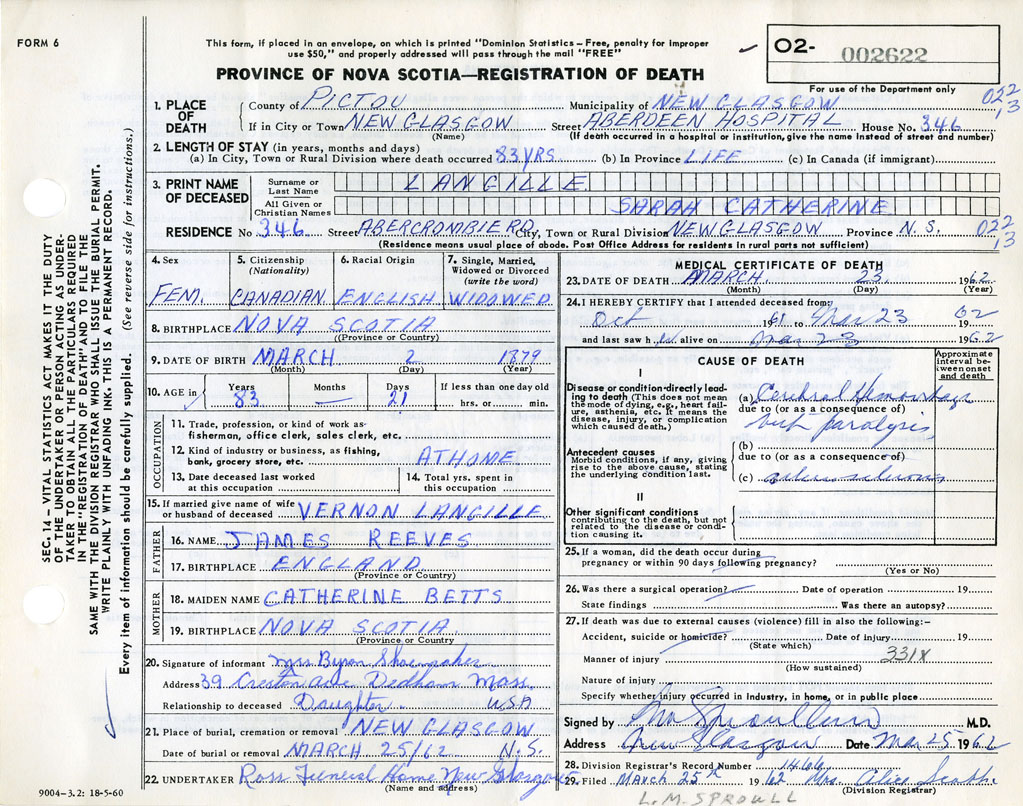 FORM 6
This form, if placed in an envelope, on which is printed "Dominion Statistics – Free, penalty for improper
use $50," and properly addressed will pass through the mail "FREE"
02- 002622
PROVINCE OF NOVA SCOTIA—REGISTRATION OF DEATH
For use of the Department only
1. PLACE OF DEATH County of PICTOU Municipality of NEW GLASGOW 022
13
If in City or Town NEW GLASGOW Street ABERDEEN HOSPITAL House No. 346
(Name) (If death occurred in a hospital or institution, give the name instead of street and number)
2. LENGTH OF STAY (in years, months and days)
(a) In City, Town or Rural Division where death occurred 83 YRS (b) In Province LIFE (c) In Canada (if immigrant)
3. PRINT NAME OF DECEASED Surname or Last Name LANGILLE
All Given or Christian Names SARAH CATHERINE
RESIDENCE No. 346 Street ABERCROMBIE RD. City, Town or Rural Division NEW GLASGOW Province N.S. 022
13
(Residence means usual place of abode. Post Office Address for residents in rural parts not sufficient)
4. Sex FEM.
5. Citizenship (Nationality) CANADIAN
6. Racial Origin ENGLISH
7. Single, Married, Widowed or Divorced (write the word) WIDOWED
8. BIRTHPLACE NOVA SCOTIA
(Province or Country)
9. DATE OF BIRTH MARCH 2 1879
(Month) (Day) (Year)
10. AGE in Years 83 Months – Days 21 If less than one day old hrs. or min.
OCCUPATION
11. Trade, profession, or kind of work as-
fisherman, office clerk, sales clerk, etc.
12. Kind of industry or business, as fishing,
bank, grocery store, etc. AT HOME
13. Date deceased last worked at this occupation
14. Total yrs. spent in this occupation
15. If married give name of wife or husband of deceased VERNON LANGILLE
FATHER
16. NAME JAMES REEVES
17. BIRTHPLACE ENGLAND
(Province or Country)
MOTHER
18. MAIDEN NAME CATHERINE BETTS
19. BIRTHPLACE NOVA SCOTIA
(Province or Country)
20. Signature of informant Mrs Byron Shoemaker
Address 39 Creston Ave Dedham Mass.
Relationship to deceased Daughter USA
21. Place of burial, cremation or removal NEW GLASGOW
Date of burial or removal MARCH 25/62 N.S.
22. UNDERTAKER Ross Funeral Home New Glasgow
(Name and address)
MEDICAL CERTIFICATE OF DEATH
23. DATE OF DEATH MARCH 23 1962
(Month) (Day) (Year)
24. I HEREBY CERTIFY that I attended deceased from:
Oct 1961 to Mar 23 1962
and last saw her alive on Mar 23 1962
CAUSE OF DEATH
Approximate interval between onset and death
I
Disease or condition directly leading to death (This does not mean the mode of dying, e.g., heart failure, asthenia, etc. It means the disease, injury, or complication which caused death.)
(a) Cerebral Hemorrhage
due to (or as a consequence of)
with paralysis
Antecedent causes
Morbid condition, if any, giving rise to the above cause, stating the underlying condition last.
(b)
due to (or as a consequence of)
(c)
II
Other significant conditions
contributing to the death, but not related to the disease or condition causing it.
25. If a woman, did the death occur during
pregnancy or within 90 days following pregnancy?
(Yes or No)
26. Was there a surgical operation? Date of operation 19
State findings Was there an autopsy?
27. If death was due to external causes (violence) fill in also the following:-
Accident, suicide or homicide? Date of injury 19
(State which)
Manner of injury 331X
(How sustained)
Nature of injury
Specify whether injury occurred in industry, in home, or in public place
Signed by M.D.
Address New Glasgow Date Mar 25 1962
28. Division Registrar's Record Number 1466
29. Filed MARCH 25th 1962 Mrs. Alice
(Division Registrar)
L. M. SPROULL
9004–3.2: 18-5-60
SEC. 14 – VITAL STATISTICS ACT MAKES IT THE DUTY
OF THE UNDERTAKER OR PERSON ACTING AS UNDER-
TAKER TO OBTAIN ALL THE PARTICULARS REQUIRED
IN THE "REGISTRATION OF DEATH" AND TO FILE THE
SAME WITH THE DIVISION REGISTRAR WHO SHALL ISSUE THE BURIAL PERMIT.
WRITE PLAINLY WITH UNFADING INK. THIS IS A PERMANENT RECORD.
Every item of information should be carefully supplied. (See reverse side for instructions.)